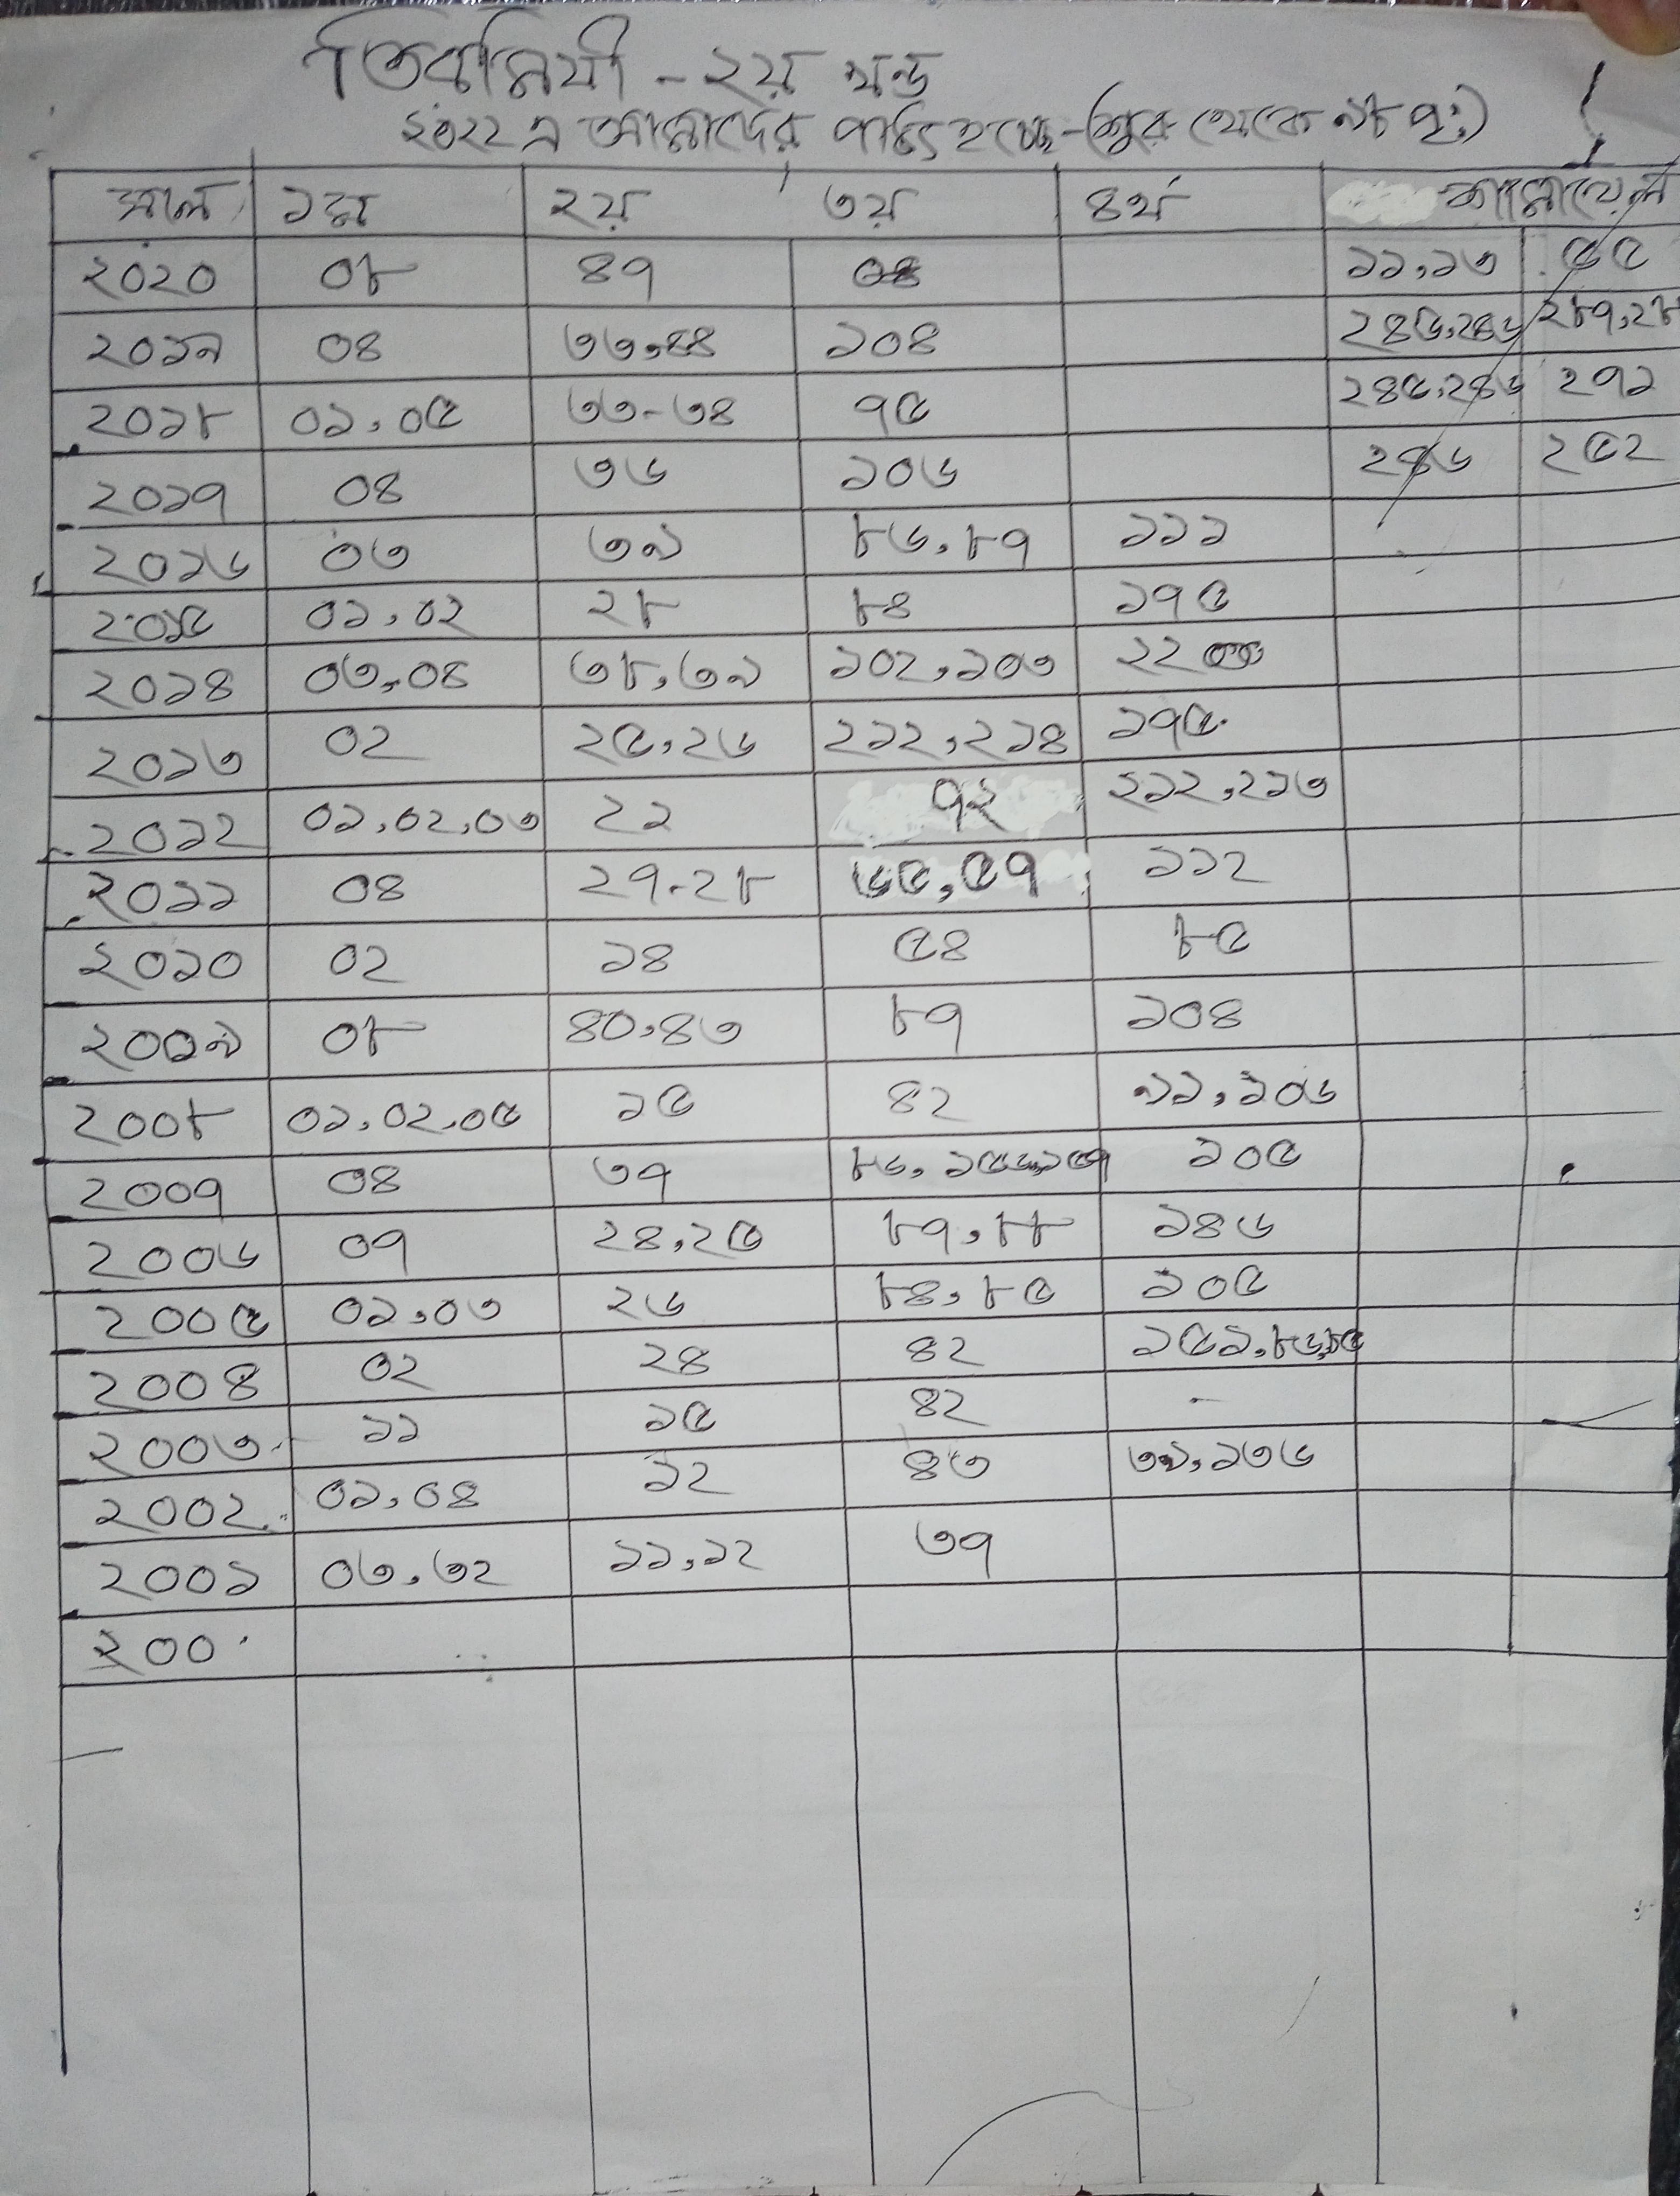 তিরমিযী - ২য় খন্ড
২০২২ এ আমাদের পাঠ্য হচ্ছে - (শুরু থেকে ৯৮ পৃ:)
সাল ১ম ২য় ৩য় ৪র্থ শামায়েল
২০২০ ০৮ ৪৭ ১১,১৩ ৫৫
২০১৯ ০৪ ৩৩,৪৪ ১০৪ ২৪৬,২৪৬ ২৮৭,২৮
২০১৮ ০১,০৫ ৩৩-৩৪ ৭৫ ২৪৫,২৪৬ ২৭১
২০১৭ ০৪ ৩৬ ১০৬ ২৪৬ ২৫২
২০১৬ ০৩ ৩৯ ৮৬,৮৭ ১১১
২০১৫ ০১,০২ ২৮ ৮৪ ১৭৫
২০১৪ ০৩,০৪ ৩৮,৩৯ ১০২,১০৩
২০১৩ ০২ ২৫,২৬ ২১২,২১৪ ১৭৫
২০১২ ০১,০২,০৩ ২১ ৭২ ২১২,২১৩
২০১১ ০৪ ২৭-২৮ ৬৫,৫৭ ১১২
২০১০ ০২ ১৪ ৫৪ ৮৫
২০০৯ ০৮ ৪০,৪৩ ৮৭ ১০৪
২০০৮ ০১,০২,০৫ ১৫ ৪২ ৯১,১০৬
২০০৭ ০৪ ৩৭ ৮৬, ১০৫
২০০৬ ০৭ ২৪,২৫ ৮৭,৮৮ ১৪৬
২০০৫ ০১,০৩ ২৬ ৮৪,৮৫ ১০৫
২০০৪ ০২ ২৪ ৪২ ১৫১,৮৬,৮৫
২০০৩ ১১ ১৫ ৪২ -
২০০২ ০১,০৪ ১২ ৪৩ ৩৯,১৩৬
২০০১ ০৩,৩২ ১১,১২ ৩৭
২০০